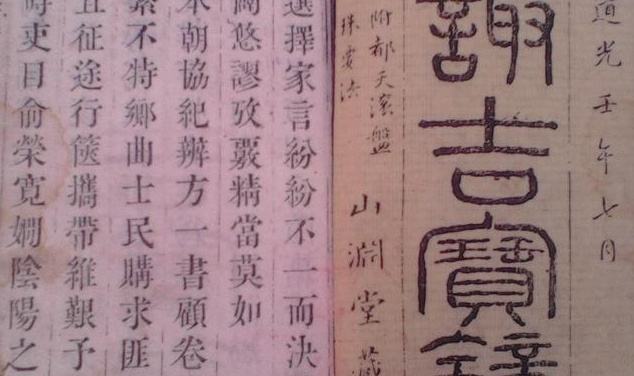 道光壬年七月
諏吉寶鏡
附都天滾盤
珠法
山淵堂藏
選擇家言紛紛不一而決
悠謬攷覈精當莫如
本朝協紀辨方一書顧卷
繁不特鄉曲士民購求匪
且征途行篋攜帶維艱予
時吏目俞榮寬嫺陰陽之